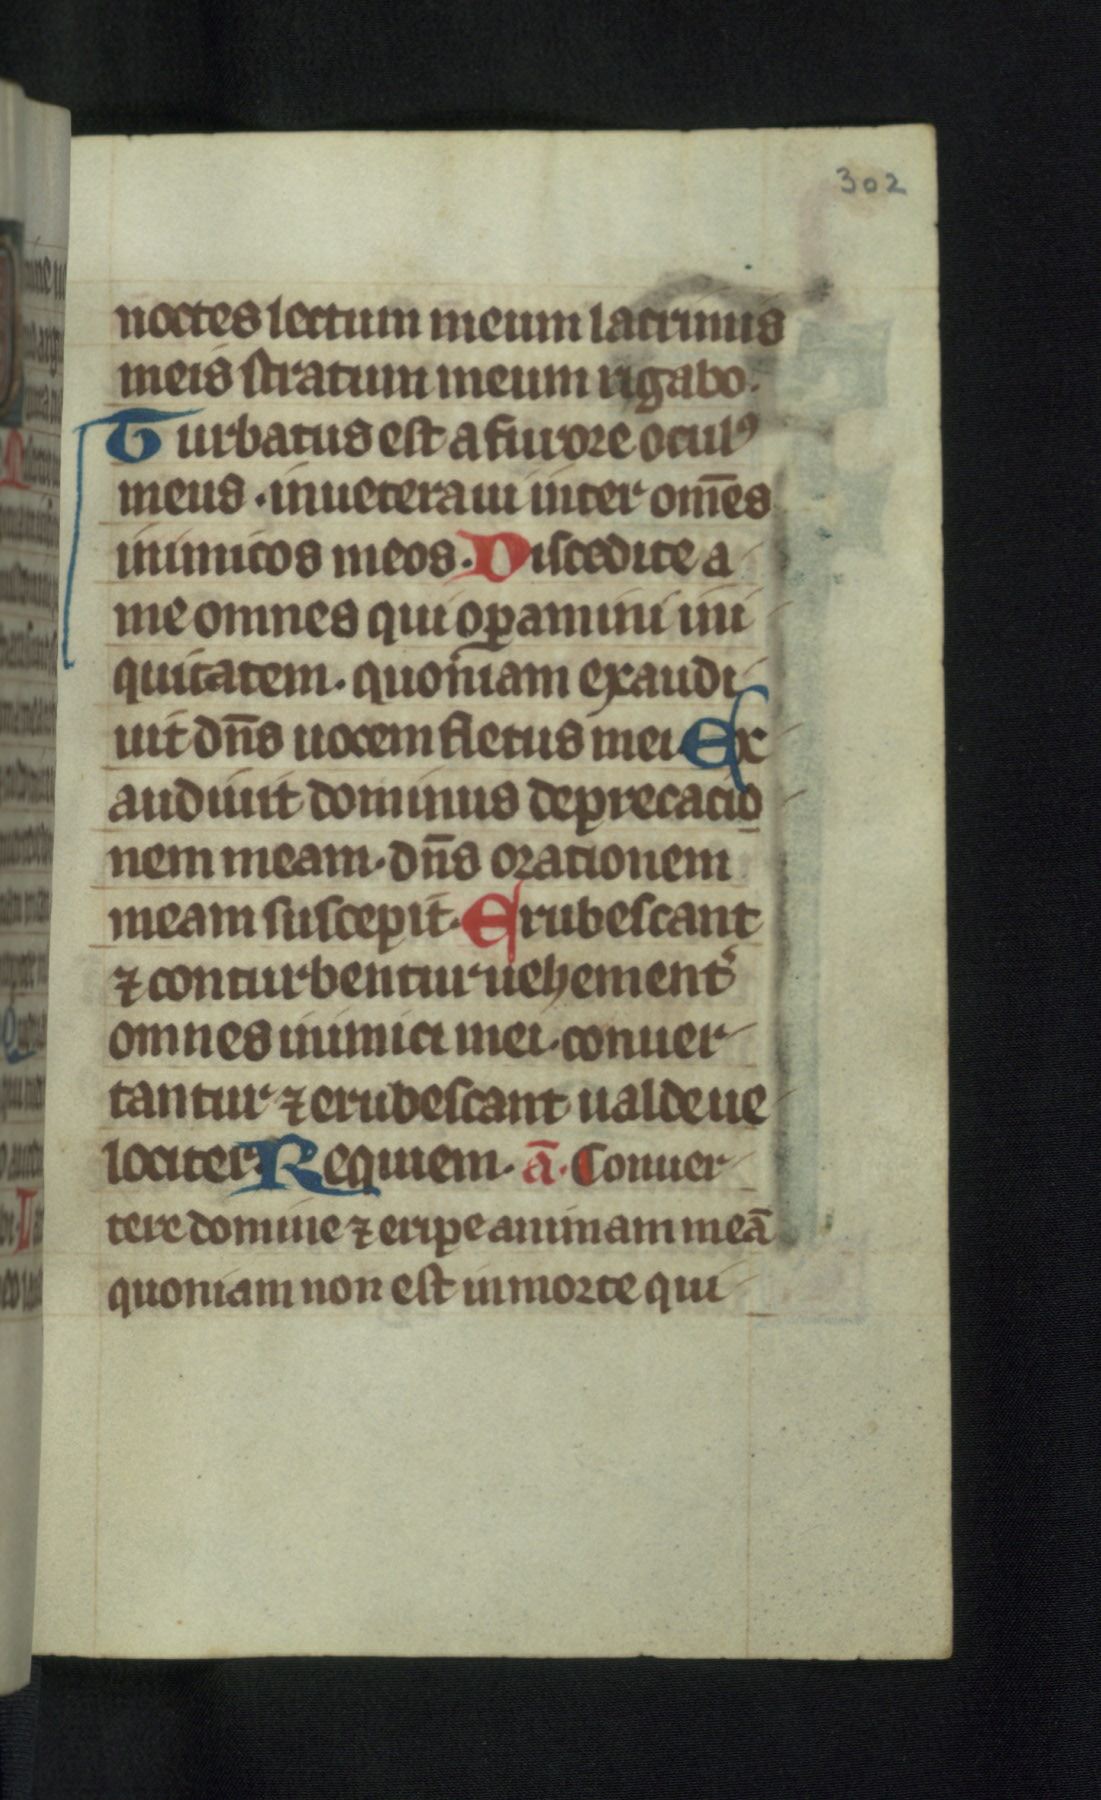 302
noctes lectum meum lacrimis
meis stratum meum rigabo.
Turbatus est a furore oculꝰ
meus . inueteraui inter om̅es
inimicos meos. Discedite a
me omnes qui oꝑamini ini
quitatem. quoniam exaudi
uit dn̅s uocem fletus mei Ex
audiuit dominus deprecatio
nem meam. dn̅s orationem
meam suscepit. Erubescant
⁊ conturbentur uehement᷑
omnes inimici mei. conuer
tantur ⁊ erubescant ualde ue
lociter. Requiem. a̅. Conuer
tere domine ⁊ eripe animam mea̅
quoniam non est in morte qui